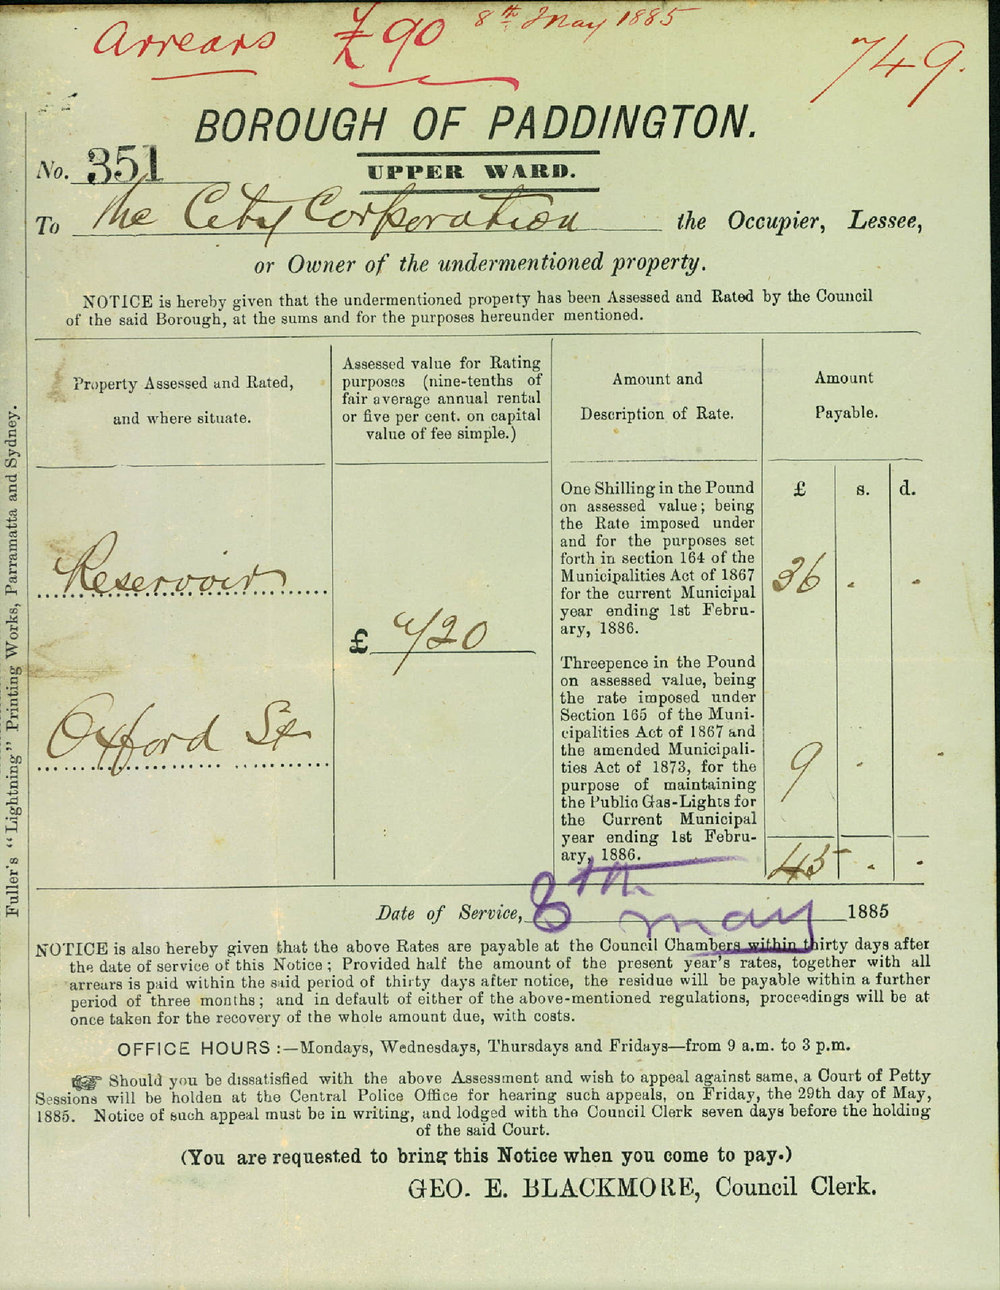 Arrears £90 8th May 1885
749.
BOROUGH OF PADDINGTON.
No. 351
UPPER WARD.
To The City Corporation the Occupier, Lessee,
or Owner of the undermentioned property.
NOTICE is hereby given that the undermentioned property has been Assessed and Rated by the Council
of the said Borough, at the sums and for the purposes hereunder mentioned.
Property Assessed and Rated,
and where situate.
Assessed value for Rating
purposes (nine-tenths of
fair average annual rental
or five per cent. on capital
value of fee simple.)
Amount and
Description of Rate.
Amount
Payable.
£ s. d.
Reservoir
Oxford St
£ 720
One Shilling in the Pound
on assessed value; being
the Rate imposed under
and for the purposes set
forth in section 164 of the
Municipalities Act of 1867
for the current Municipal
year ending 1st Febru-
ary, 1886.
36 . .
Threepence in the Pound
on assessed value, being
the rate imposed under
Section 165 of the Muni-
cipalities Act of 1867 and
the amended Municipali-
ties Act of 1873, for the
purpose of maintaining
the Public Gas-Lights for
the Current Municipal
year ending 1st Febru-
ary, 1886.
9 . .
45 . .
Date of Service, 8th May 1885
NOTICE is also hereby given that the above Rates are payable at the Council Chambers within thirty days after
the date of service of this Notice; Provided half the amount of the present year's rates, together with all
arrears is paid within the said period of thirty days after notice, the residue will be payable within a further
period of three months; and in default of either of the above-mentioned regulations, proceedings will be at
once taken for the recovery of the whole amount due, with costs.
OFFICE HOURS :—Mondays, Wednesdays, Thursdays and Fridays—from 9 a.m. to 3 p.m.
☞ Should you be dissatisfied with the above Assessment and wish to appeal against same, a Court of Petty
Sessions will be holden at the Central Police Office for hearing such appeals, on Friday, the 29th day of May,
1885. Notice of such appeal must be in writing, and lodged with the Council Clerk seven days before the holding
of the said Court.
(You are requested to bring this Notice when you come to pay.)
GEO. E. BLACKMORE, Council Clerk.
Fuller's "Lightning" Printing Works, Parramatta and Sydney.